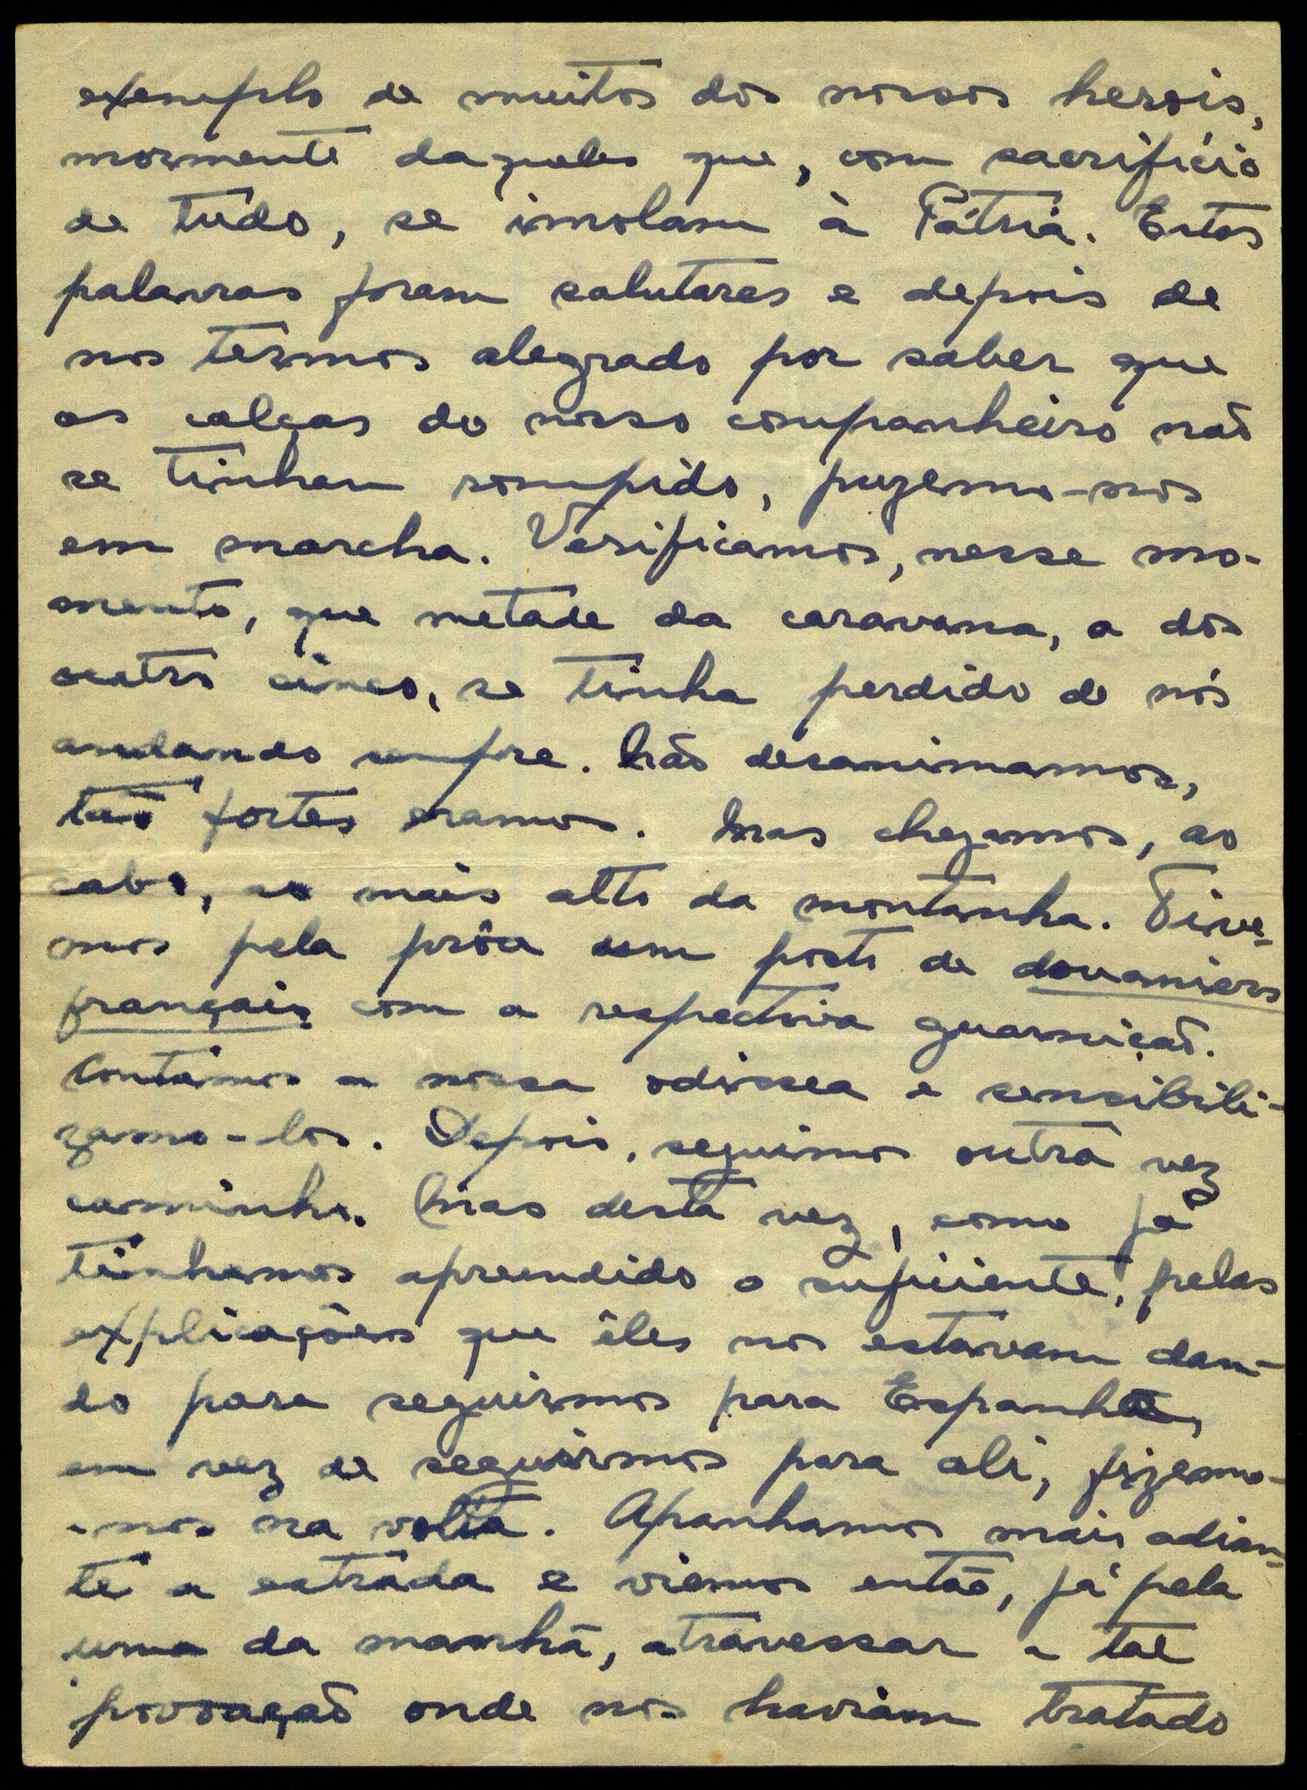 exemplo de muitos dos nossos herois,
mormente daqueles que, com sacrifício
de tudo, se imolam à Pátria. Estas
palavras foram salutares e depois de
nos termos alegrado por saber que
as calças do nosso companheiro não
se tinham rompido, puzemo-nos
em marcha. Verificamos, nesse mo-
mento, que metade da caravana, a dos
outros cinco, se tinha perdido de nós
andando sempre. Não desanimamos,
tão fortes eramos. Mas chegamos, ao
cabo, ao mais alto da montanha. Tive-
mos pela prôa um posto de douaniers
français com a respectiva guarnição.
Contámos a nossa odissea e sensibili-
zamo-los. Depois, seguimos outra vez
caminho. Mas desta vez, como já
tinhamos aprendido o suficiente, pelas
explicações que êles nos estavam dan-
do para seguirmos para Espanha,
em vez de seguirmos para ali, fizemo-
-nos na volta. Apanhamos mais adian-
te a estrada e viemos então, já pela
uma da manhã, atravessar a tal
povoação onde nos haviam tratado